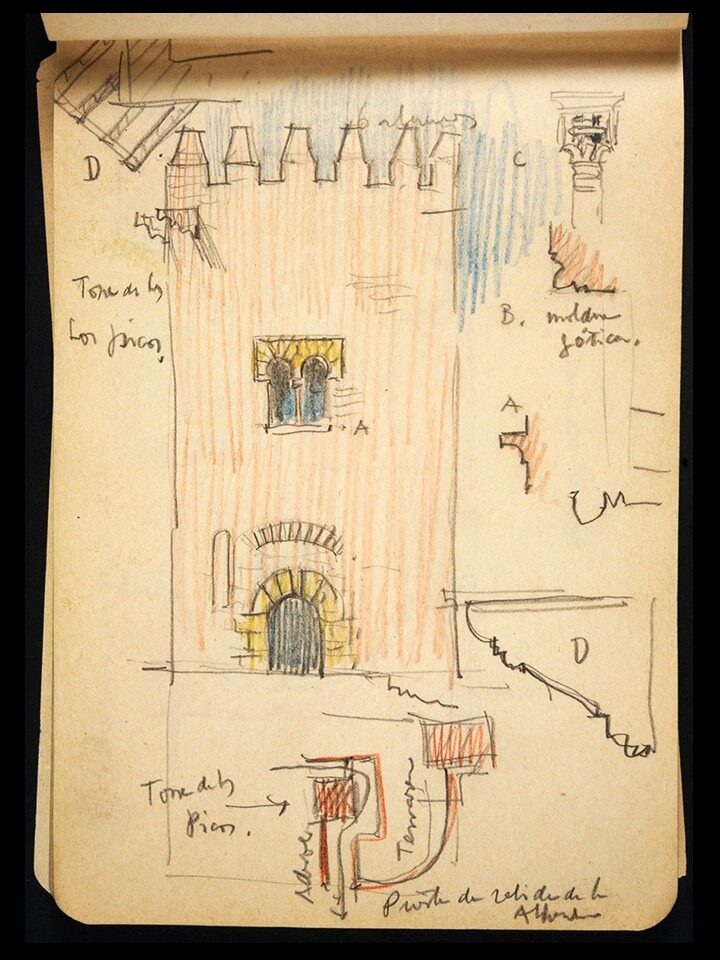 6 almenas
D
C
Torre de los
Los picos.
B. moldura
gótica.
A
A
D
Torre de los
Picos.
Adarve
Terraza
Puerta de salida de la
Alhambra